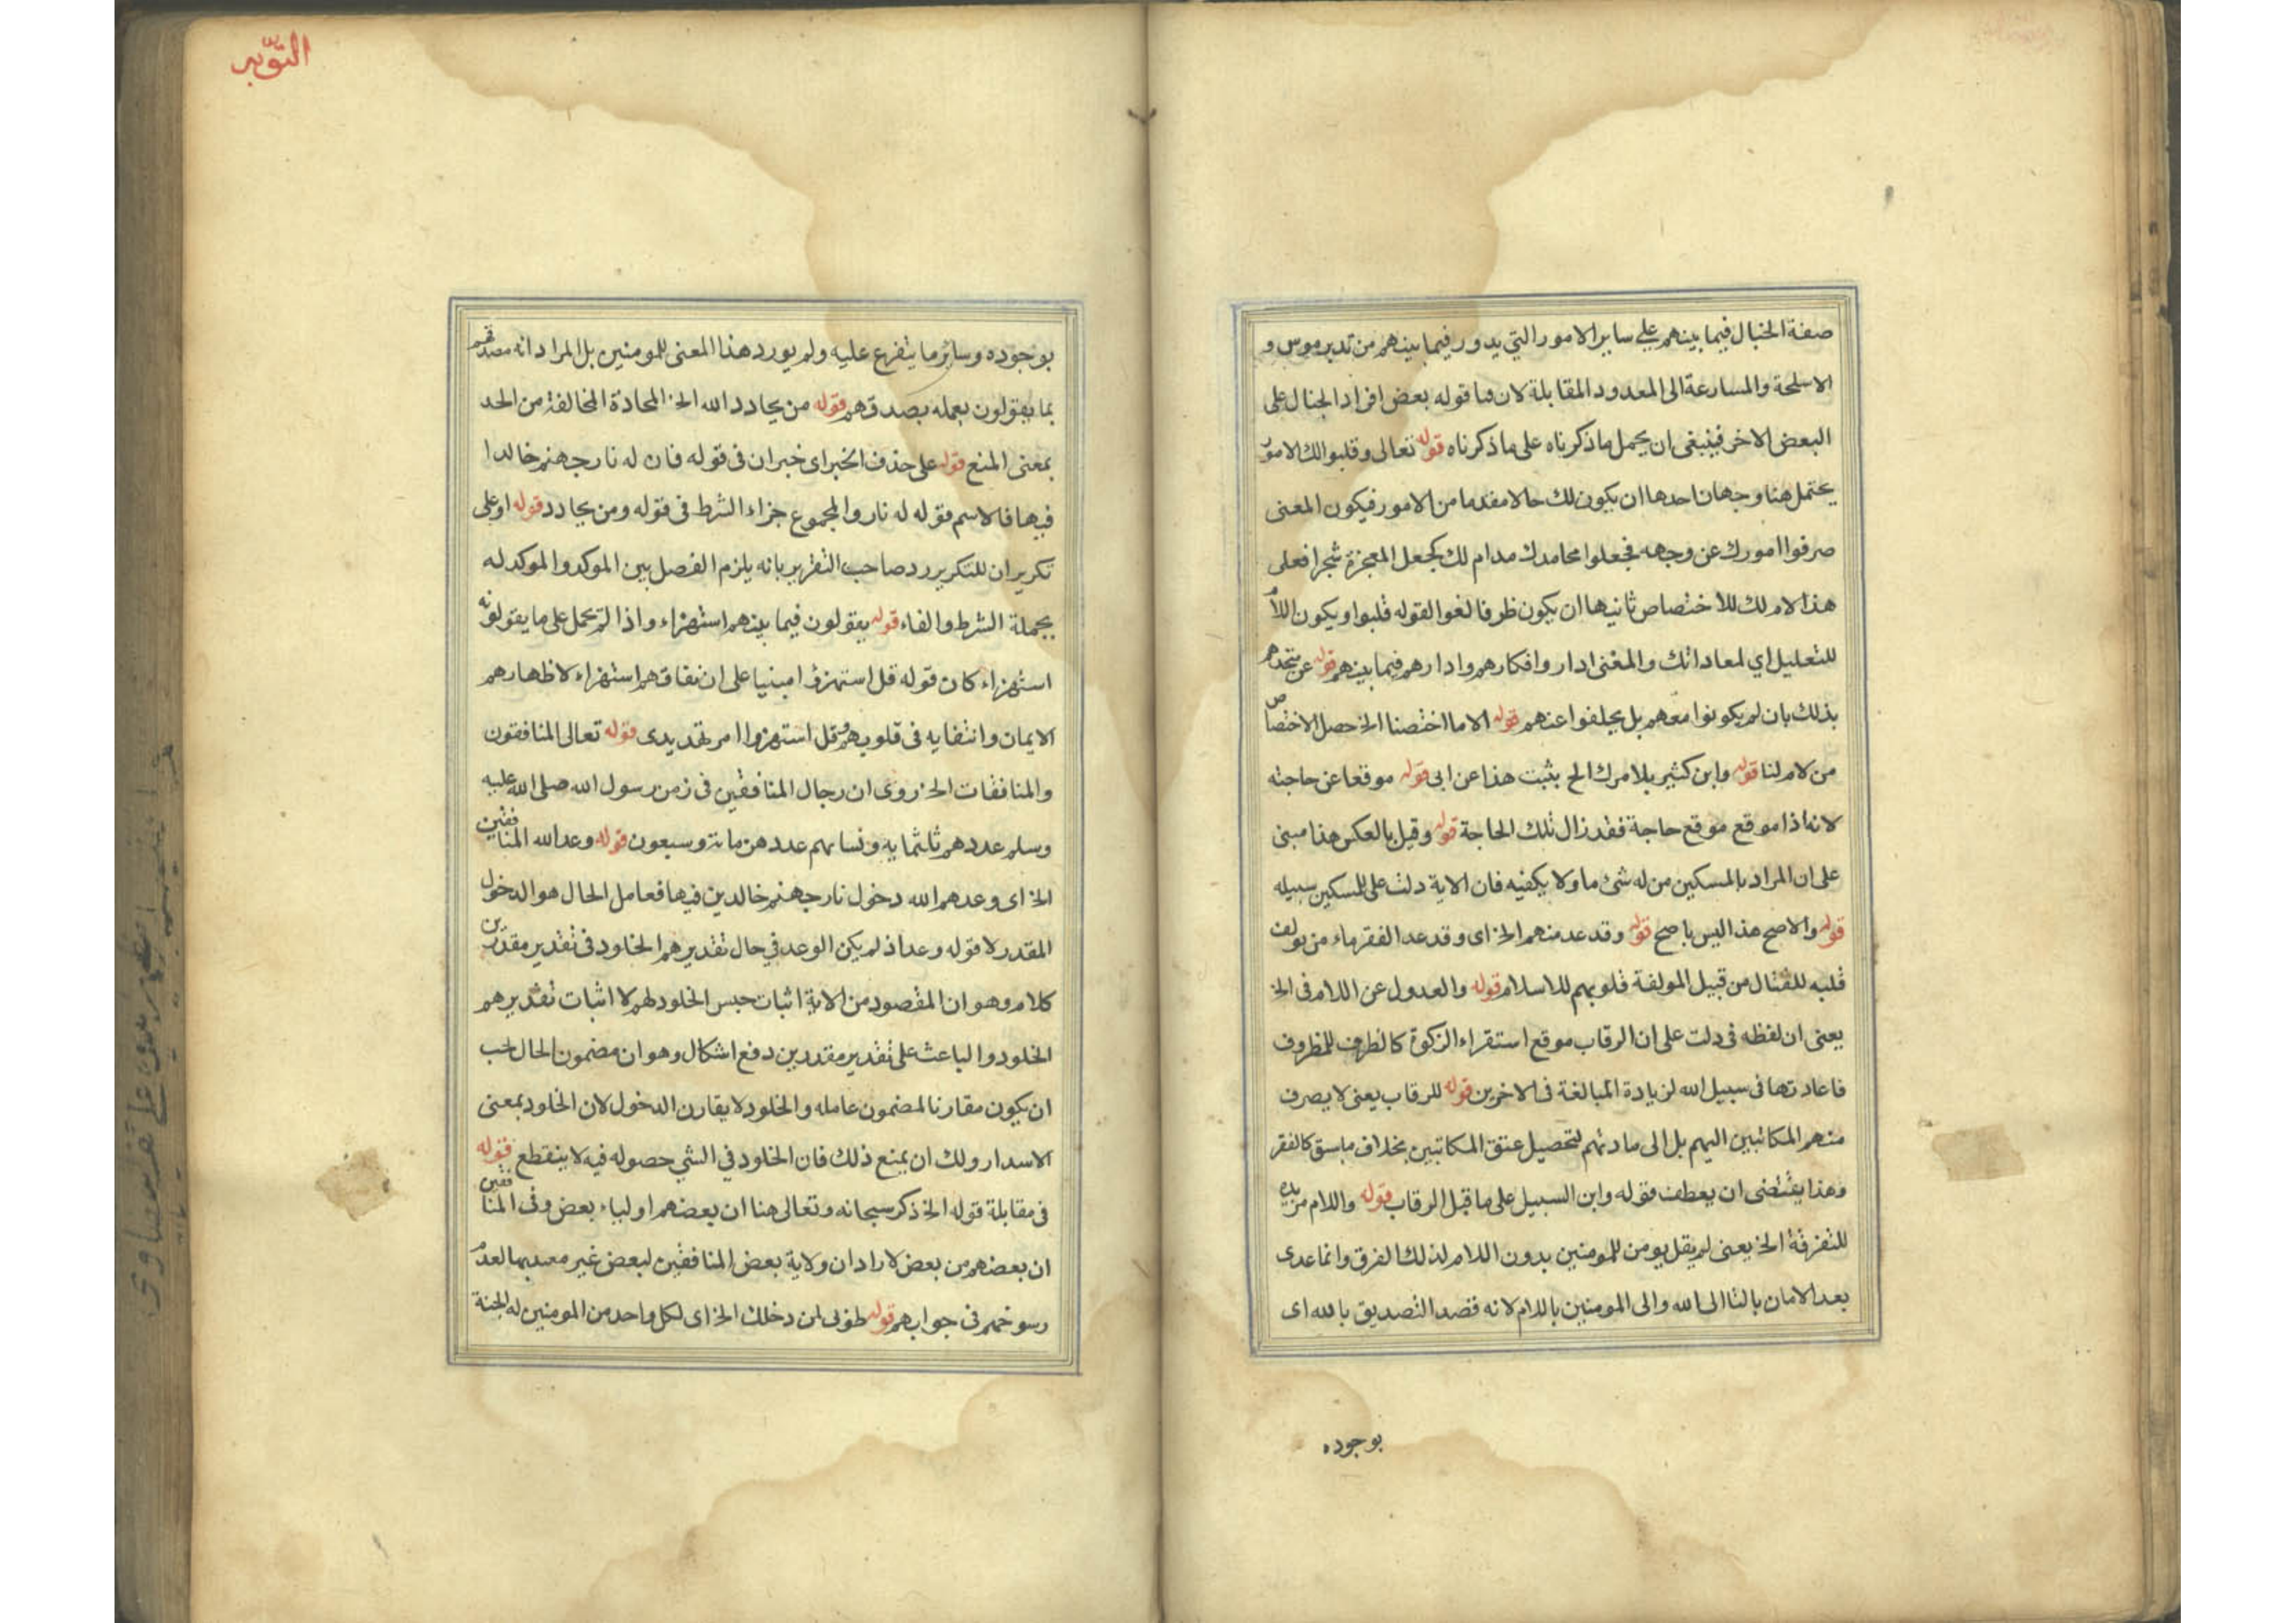 صفة الخبال فيما بينهم على ساير الامور التي يدور فيما بينهم من تدبير موس و
الاسلحة والمسارعة الى المعدود المقابلة لان قوله بعض افراد الخبال على
البعض الاخر فينبغى ان يحمل ما ذكرناه على ما ذكرناه قوله تعالى وقلبوا لك الامور
يحتمل هنا وجهان احدها ان يكون لك حالا مقدما من الامور فيكون المعنى
صرفوا امورك عن وجهه فجعلوا محامدك مدام لك كجعل المعجزة شجرا فعلى
هذا لام لك للاختصاص ثانيها ان يكون ظرفا لغوا لقوله قلبوا ويكون اللام
للتعليل اي لمعاداتك والمعنى ادار وافكارهم وادارهم فيما بينهم قوله عن متحدهم
بذلك بان لم يكونوا معهم بل يحلفوا عنهم قوله الا ما اختصنا الخ حصل الاختصاص
من لام لنا قوله وابن كثير بلا مرك الخ يثبت هذا عن ابى قوله موقعا عن حاجته
لانه اذا موقع موقع حاجة فقد زال تلك الحاجة قوله وقيل بالعكس هنا مبنى
على ان المراد بالمسكين من له شئ ما ولا يكفيه فان الاية دلت على للسكين سبيله
قوله والاصح هذا ليس باصح قوله وقد عد منهم الخ اى وقد عد الفقرماء من يولف
قلبه للقتال من قبيل المولفة قلوبهم للاسلام قوله والعدول عن اللام فى الخ
يعنى ان لفظه فى دلت على ان الرقاب موقع استقراء الزكوة كالظرف للمظروف
فاعادتها فى سبيل الله لزيادة المبالغة فى الاخرين قوله للرقاب يعنى لا يصرف
منهم المكاتبين اليهم بل الى مادتهم لتحصيل عتق المكاتبين بخلاف ماسبق كالفقر
وهذا يقتضى ان يعطف قوله وابن السبيل على ما قبل الرقاب قوله واللام مزيده
للتفرقة الخ يعنى لم يقل يومن للمومنين بدون اللام لذلك الفرق وانما عدى
بعد الامان بالتا الى الله والى المومنين باللام لانه قصد التصديق بالله اى
بوجوده
التوبه
بوجوده وساير ما يتفرع عليه ولم يورد هذا المعنى للمومنين بل المراد انه مصدقهم
بما يقولون بعمله بصدقهم قوله من يحادد الله الخ المحادة المخالفة من الحد
بمعنى المنع قوله على حذف الخبر اى خبر ان فى قوله فان له نار جهنم خالدا
فيها فالاسم قوله له نار والمجموع جزاء الشرط فى قوله ومن يحادد قوله او على
تكرير ان للتكرير رد صاحب التقرير بانه يلزم الفصل بين الموكد والموكد له
بجملة الشرط والفاء قوله يقولون فيما بينهم استهزاء واذا لم تحمل على ما يقولونه
استهزاء كان قوله قل استهزؤا مبنيا على ان نفاقهم استهزاء لاظهارهم
الايمان وانتفايه فى قلوبهم وقل استهزوا امر تهديدى قوله تعالى المنافقون
والمنافقات الخ روى ان رجال المنافقين فى زمن رسول الله صلى الله عليه
وسلم عددهم ثلثمايه ونسايهم عددهن مائة وسبعون قوله وعد الله المنافقين
الخ اى وعدهم الله دخول نار جهنم خالدين فيها فعامل الحال هو الدخول
المقدر لا قوله وعد اذ لم يكن الوعد في حال تقديرهم الخلود فى تقدير مقدرين
كلام وهو ان المقصود من الاية اثبات حبس الخلود لهم لا اثبات تقديرهم
الخلود والباعث على تقدير مقدرين دفع اشكال وهو ان مضمون الحال لحب
ان يكون مقارنا لمضمون عامله والخلود لا يقارن الدخول لان الخلود بمعنى
الاسدار ولك ان يمنع ذلك فان الخلود في الشي حصوله فيه لا ينقطع قوله
فى مقابلة قوله الخ ذكر سبحانه وتعالى هنا ان بعضهم اولياء بعض وفى المنافقين
ان بعضهم من بعض لاراد ان ولاية بعض المنافقين لبعض غير معتد بها لعدم
رسوخهم فى جوابهم قوله طوبى لمن دخلك الخ اى لكل واحد من المومنين له الجنة